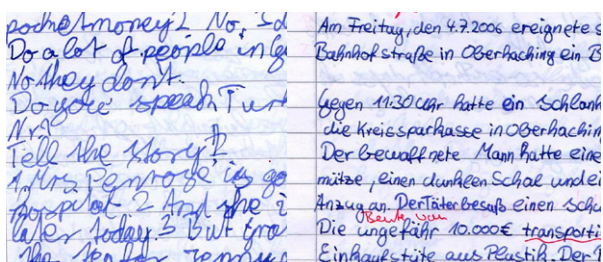 pocket money? No, Id
Do a lot of people in G
No they don't.
Do you speak Tur
Tell the story!!
1 Mrs. Penrose is go
hospital 2 And she i
later today. 3 But gra
the tea for Jenny a
Am Freitag, den 4.7.2006 ereignete s
Bahnhofstraße in Oberhaching ein B
Gegen 11:30 Uhr hatte ein schlank
die Kreissparkasse in Oberhaching
Der bewaffnete Mann hatte eine
mütze, einen dunklen Schal und ei
Anzug an. Der Täter besaß einen Schu
Beute von
Die ungefähr 10.000€ transporti
Einkaufstüte aus Plastik. Der